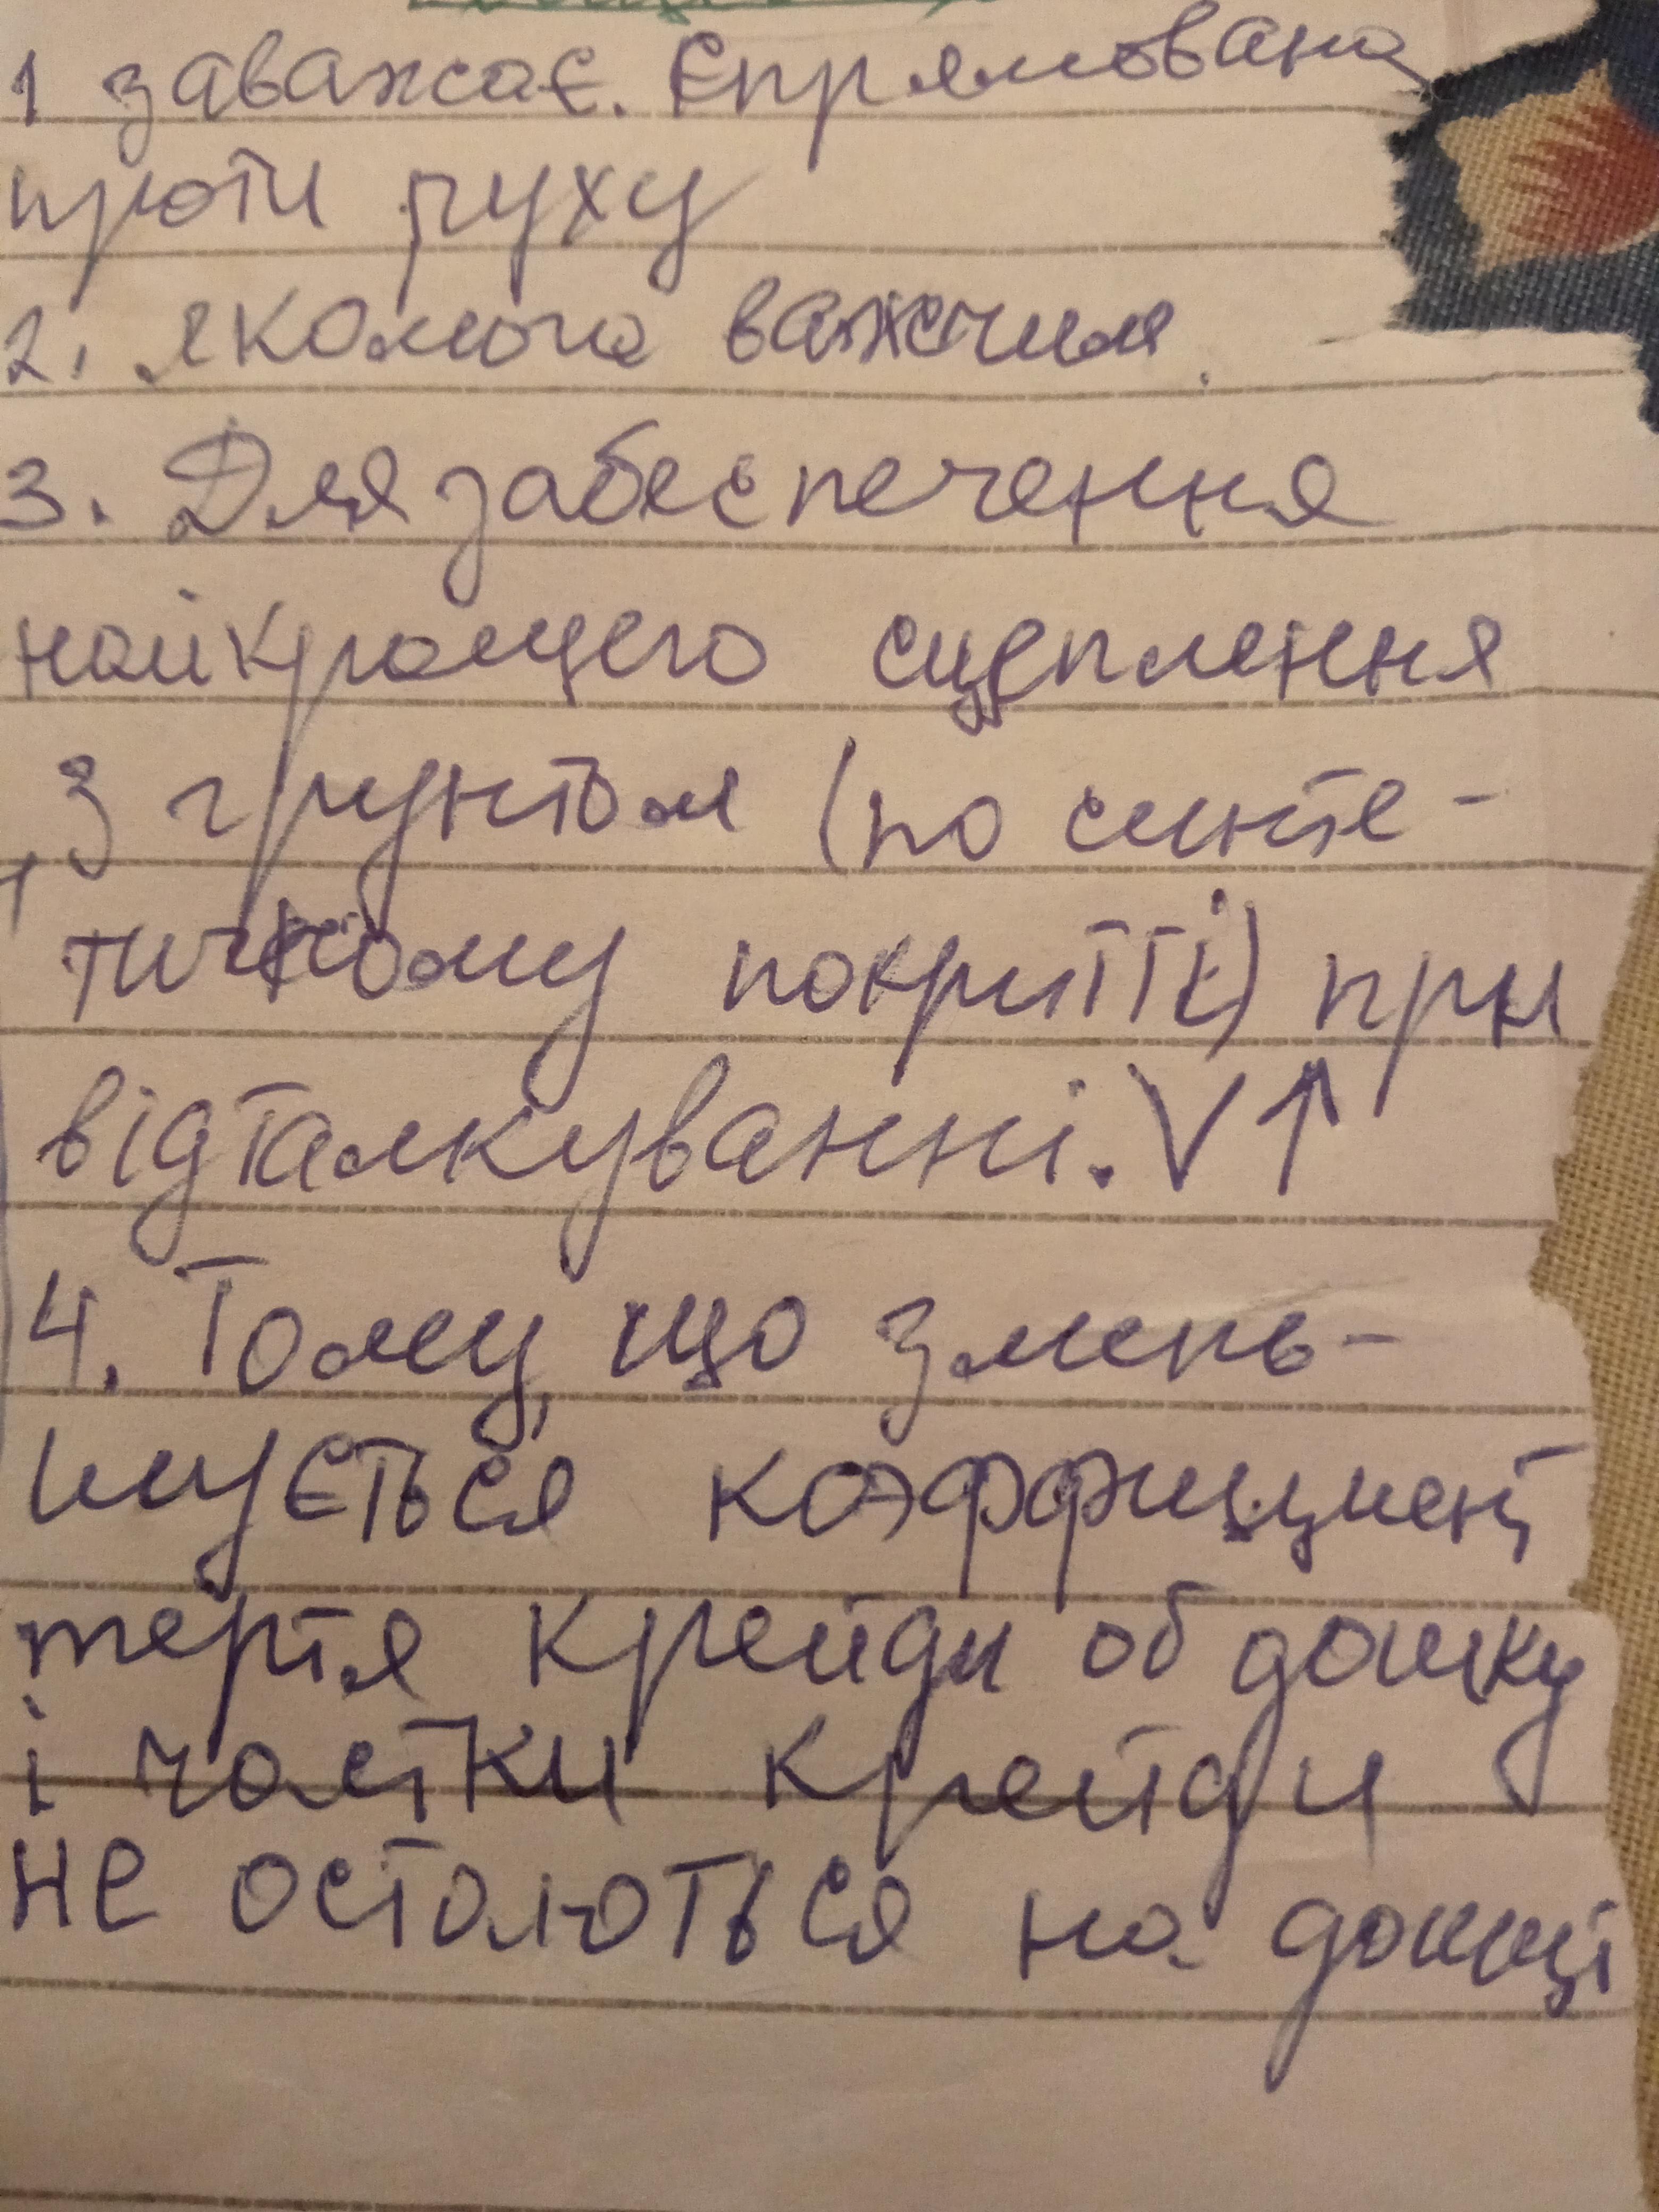 1 заважає. Спрямована
проти руху
2. якомога важчим.
3. Для забеспечення
найкращего сцеплення
з грунтом (по синте-
тичному покритті) при
відталкуванні. V↑
4. Тому, що змень-
шується коэффициент
тертя крейди об дошку
і частки крейди
не остаються на дошці